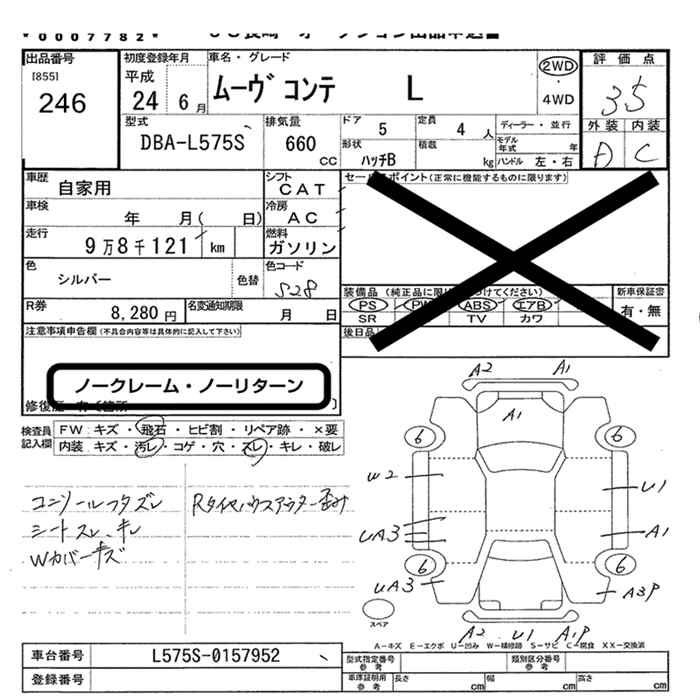 * 0007782 *
出品番号
[855]
246
初度登録年月
平成
24 6月
車名・グレード
ムーヴ コンテ L
2WD
・
4WD
評価点
3.5
外装 内装
A C
型式
DBA-L575S
排気量
660
cc
ドア
5
定員
4 人
ディーラー・並行
形状
ハッチB
積載
kg
モデル年式
年
ハンドル 左・右
車歴
自家用
シフト
CAT
セールスポイント(正常に機能するものに限ります)
車検
年 月( 日)
冷房
AC
走行
9万8千121 km
燃料
ガソリン
色
シルバー
色替
色コード
S28
装備品
PS PW ABS エアB
SR TV カワ
新車保証書
有・無
R券
8,280円
名変通知期限
月 日
後日品
注意事項申告欄(不具合内容等は具体的に記入して下さい)
ノークレーム・ノーリターン
検査員
記入欄
FW キズ・飛石・ヒビ割・リペア跡・×要
内装 キズ・汚レ・コゲ・穴・スレ・キレ・破レ
コンソールフタズレ
シートスレ、キレ
Wカバーキズ
A2 A1
A1
6 6
W2 U1
UA3 A1
6 6
UA3 A3P
スペア
A2 U1 A1P
A-キズ E-エクボ U-凹み W-補修跡 S-サビ C-腐食 XX-交換済
車台番号
L575S-0157952
登録番号
型式指定番号
参考
類別区分番号
参考
車庫証明用
参考
長さ
cm
幅
cm
高さ
cm